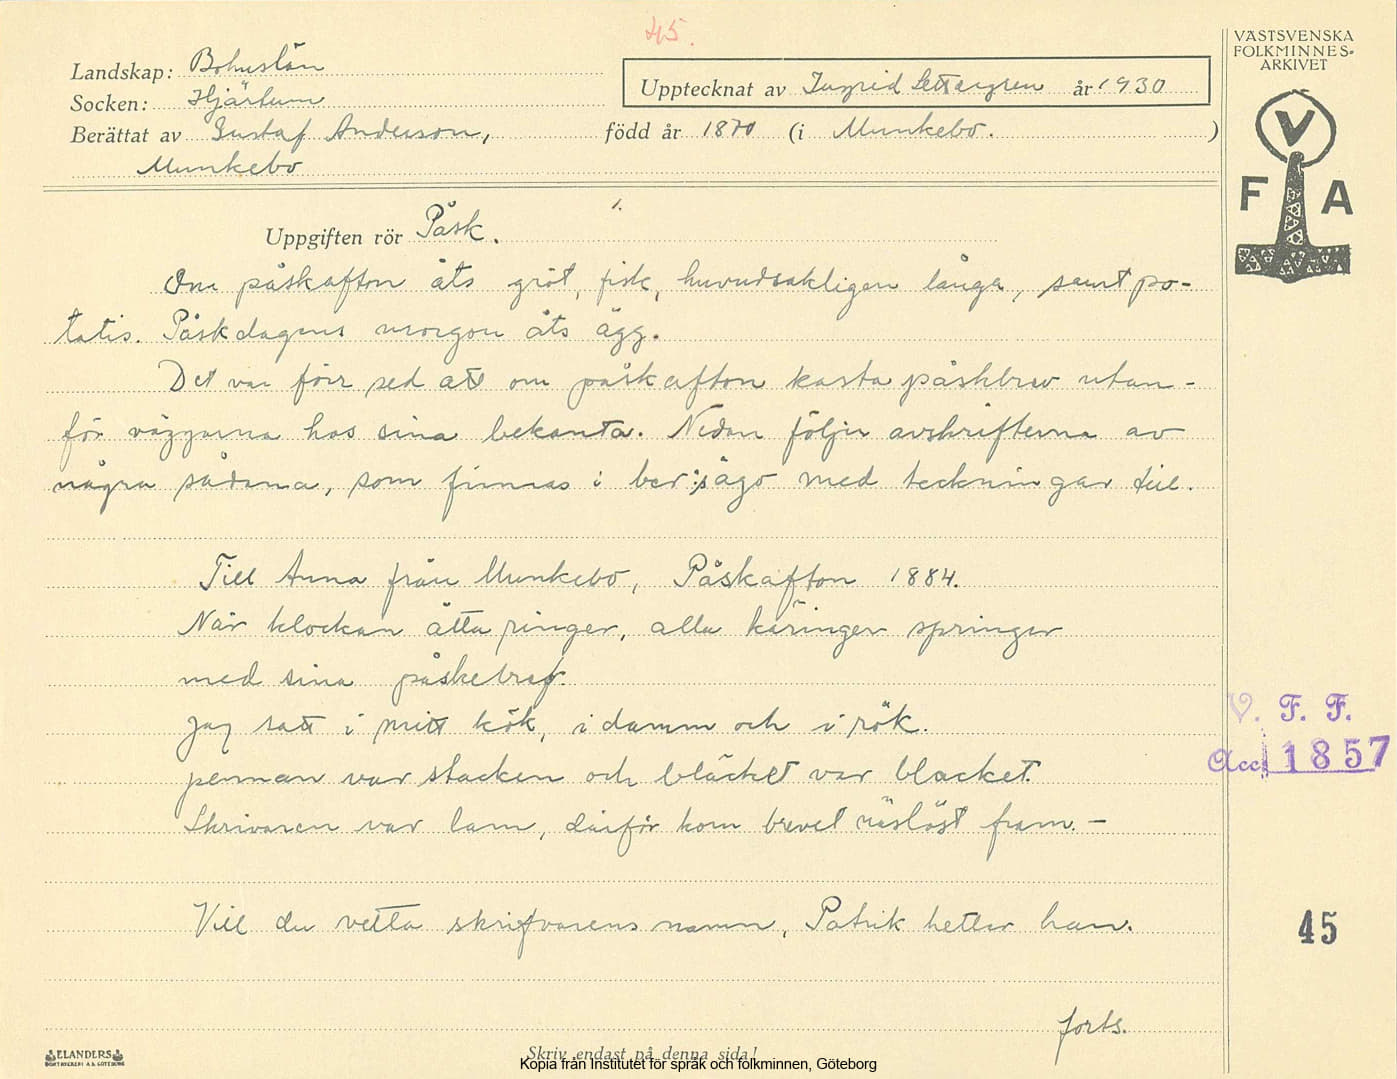 45.
Landskap: Bohuslän
Socken: Hjärtum
Berättat av Gustaf Anderson,
Munkebo
Upptecknat av Ingrid Settergren år 1930
född år 1870 (i Munkebo. )
VÄSTSVENSKA
FOLKMINNES-
ARKIVET
V
F A
1.
Uppgiften rör Påsk.
Om påskafton åts gröt, fisk, huvudsakligen långa, samt po-
tatis. Påskdagens morgon åts ägg.
Det var förr sed att om påskafton kasta påskbrev utan-
för väggarna hos sina bekanta. Nedan följer avskrifterna av
några sådana, som finnas i ber:s ägo med teckningar till.
Till Anna från Munkebo, Påskafton 1884.
När klockan åtta ringer, alla käringer springer
med sina påskebref.
Jag satt i mitt kök, i damm och i rök.
pennan var stacken och bläcket var blacket.
Skrivaren var lam, därför kom brevet näslöst fram. -
Vill du vetta skrifvarens namn, Patrik hetter han.
forts.
V. F. F.
Acc. 1857
45
ELANDERS
BOKTRYCKERI A.B. GÖTEBORG
Skriv endast på denna sida!
Kopia från Institutet för språk och folkminnen, Göteborg